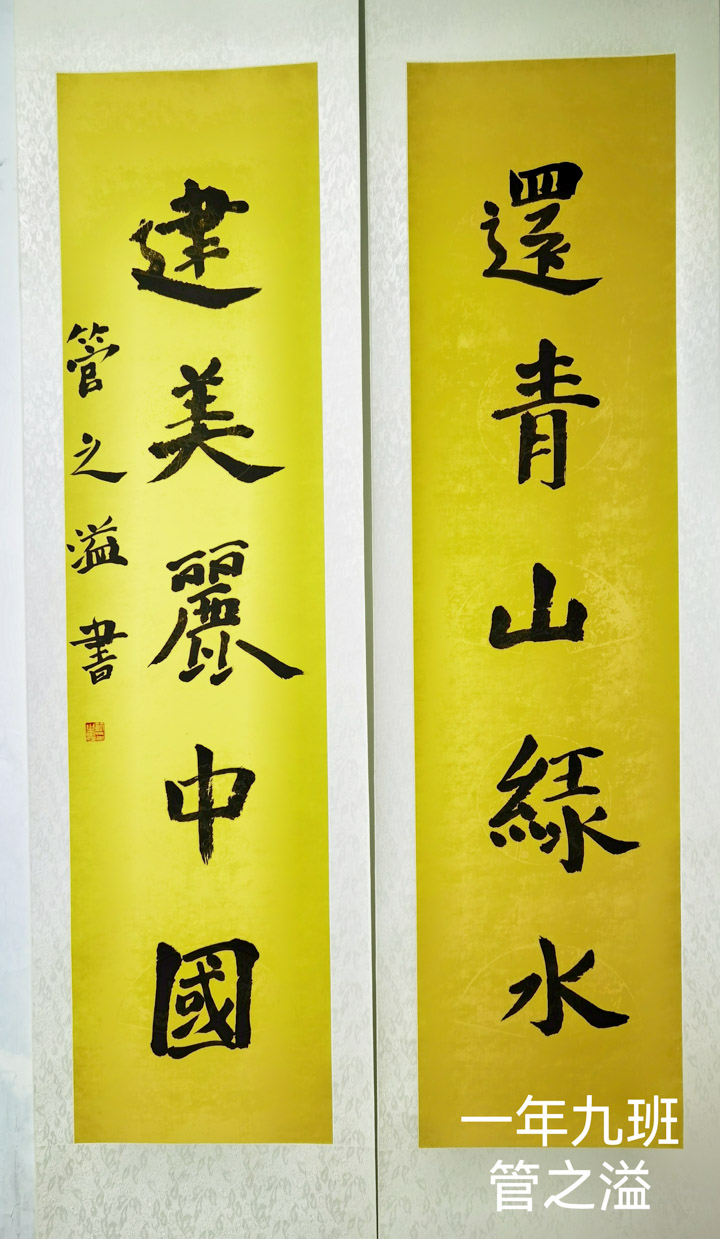 還青山綠水
建美麗中國
管之溢書
一年九班
管之溢